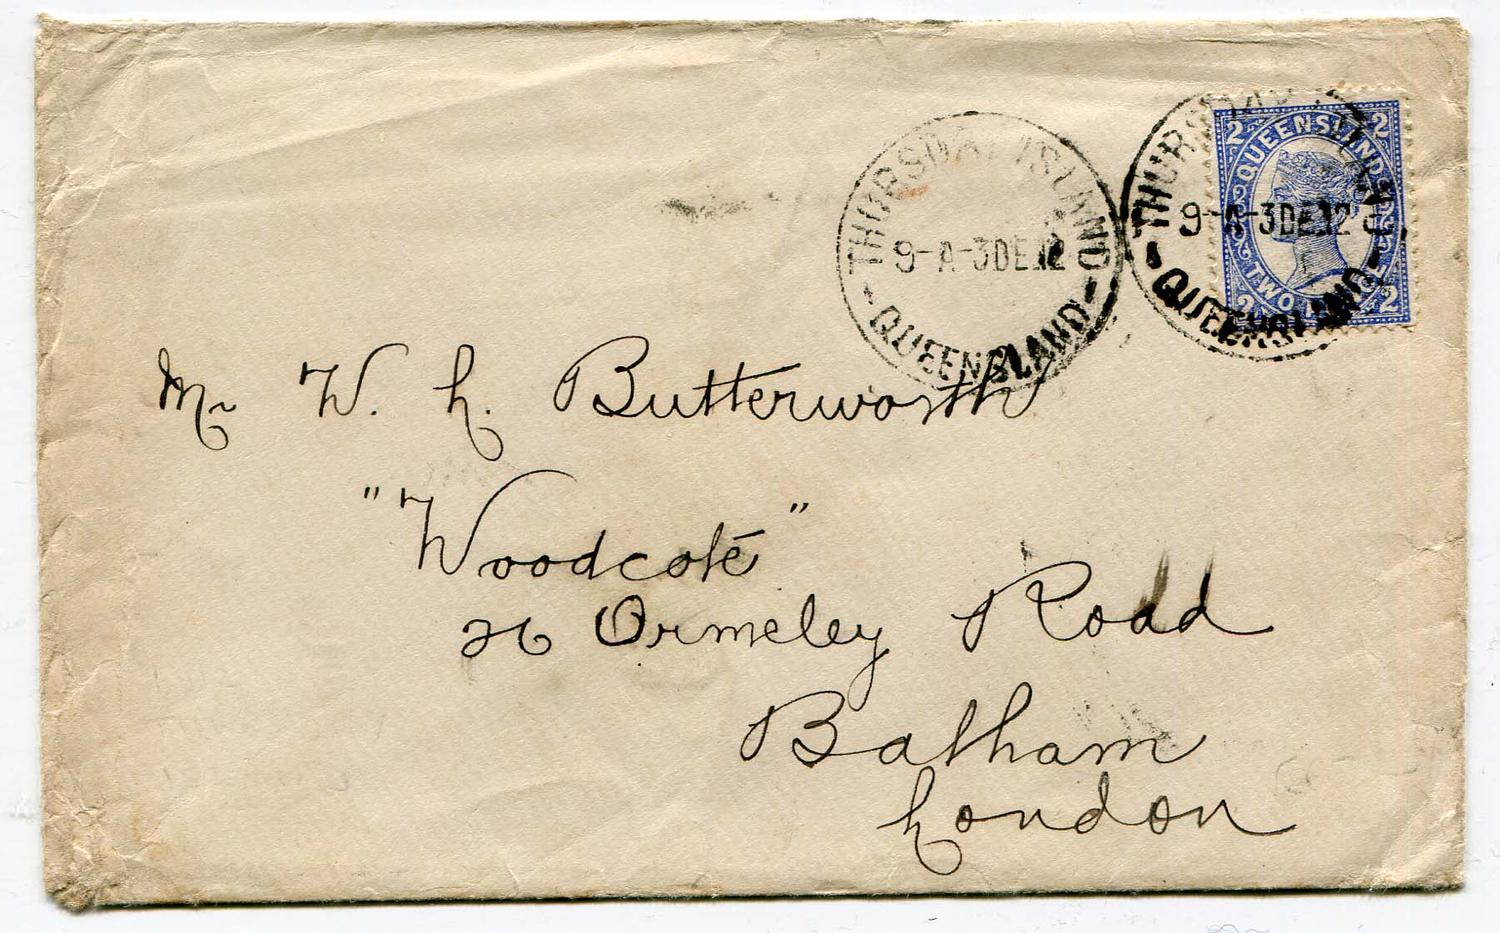 THURSDAY ISLAND
9-A-3DE12
QUEENSLAND
THURSDAY ISLAND
9-A-3DE12
QUEENSLAND
2 2
QUEENSLAND
TWO
2 2
Mr W. H. Butterworth
"Woodcote"
26 Ormeley Road
Balham
London